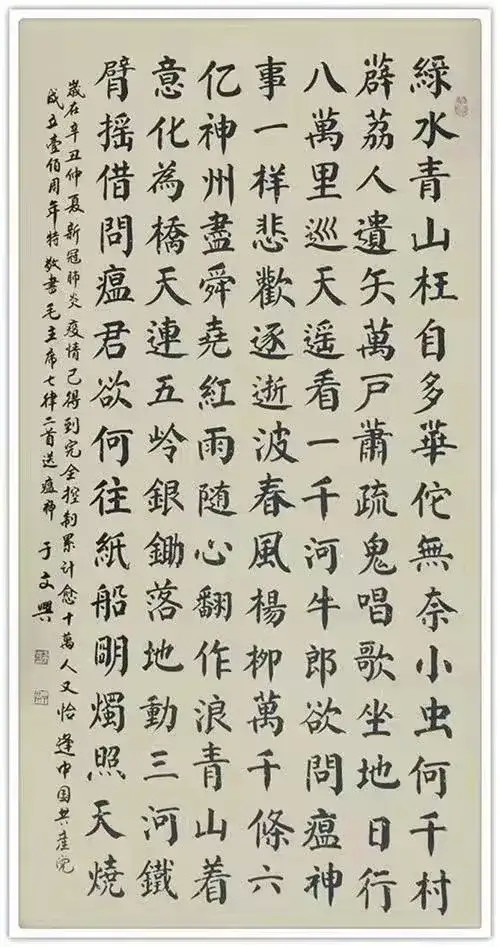 綠水青山枉自多華佗無奈小虫何千村
薜荔人遺矢萬戶蕭疏鬼唱歌坐地日行
八萬里巡天遥看一千河牛郎欲問瘟神
事一样悲歡逐逝波春風楊柳萬千條六
亿神州盡舜堯紅雨随心翻作浪青山着
意化為橋天連五岭銀鋤落地動三河鐵
臂摇借問瘟君欲何往紙船明燭照天燒
歲在辛丑仲夏新冠肺炎疫情已得到完全控制累计愈十萬人又恰逢中国共産党
成立壹佰周年特敬書毛主席七律二首送瘟神 于文興